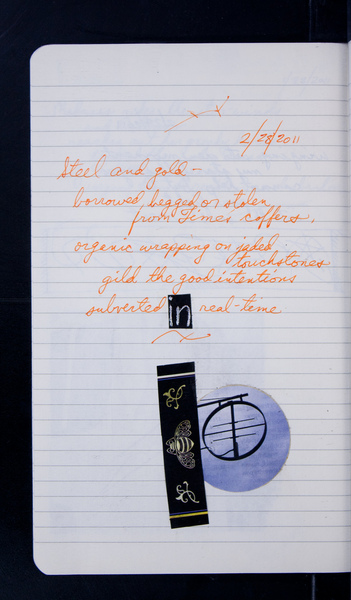 2/28/2011
Steel and gold —
borrowed, begged or stolen
from Time's coffers,
organic wrapping on jaded
touchstones
gild the good intentions
subverted in real-time